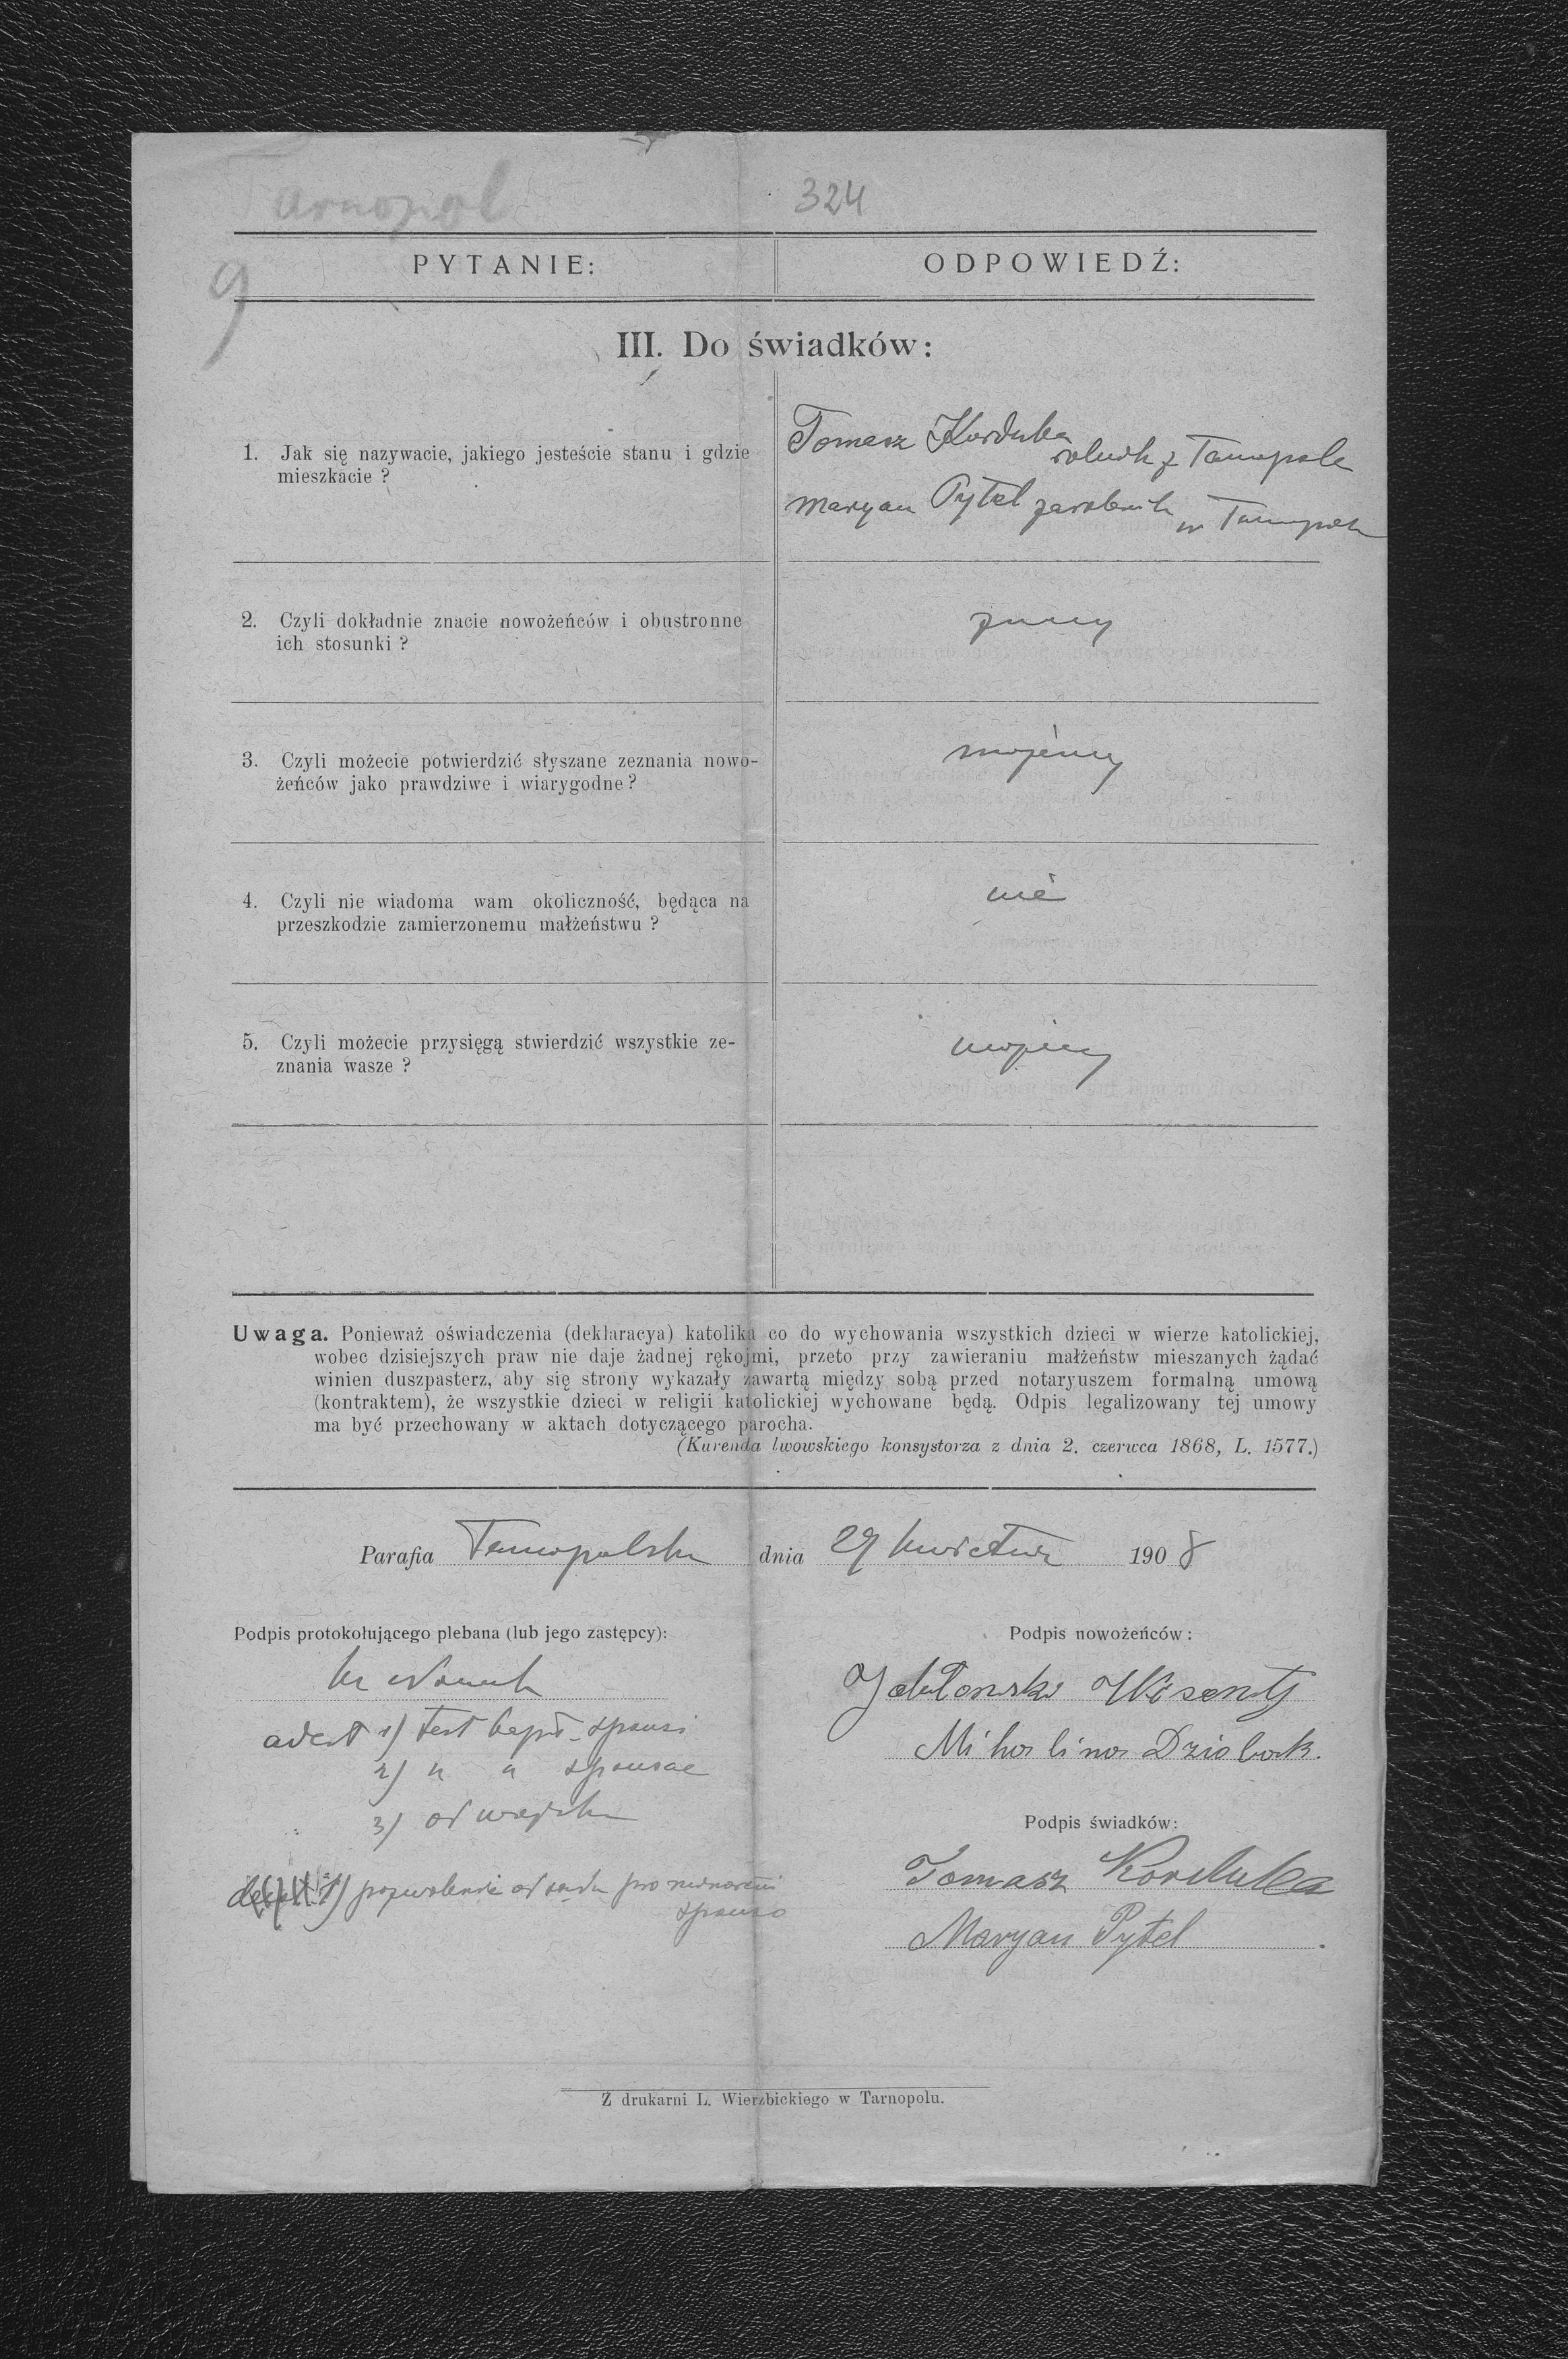 Tarnopol
324
9
PYTANIE:
ODPOWIEDŹ:
III. Do świadków:
1. Jak się nazywacie, jakiego jesteście stanu i gdzie
mieszkacie ?
Tomasz Korduba
rolnik z Tarnopola
Maryan Pytel zarobnik
w Tarnopolu
2. Czyli dokładnie znacie nowożeńców i obustronne
ich stosunki ?
znamy
3. Czyli możecie potwierdzić słyszane zeznania nowo-
żeńców jako prawdziwe i wiarygodne ?
możemy
4. Czyli nie wiadoma wam okoliczność, będąca na
przeszkodzie zamierzonemu małżeństwu ?
nie
5. Czyli możecie przysięgą stwierdzić wszystkie ze-
znania wasze ?
możemy
Uwaga. Ponieważ oświadczenia (deklaracya) katolika co do wychowania wszystkich dzieci w wierze katolickiej,
wobec dzisiejszych praw nie daje żadnej rękojmi, przeto przy zawieraniu małżeństw mieszanych żądać
winien duszpasterz, aby się strony wykazały zawartą między sobą przed notaryuszem formalną umową
(kontraktem), że wszystkie dzieci w religii katolickiej wychowane będą. Odpis legalizowany tej umowy
ma być przechowany w aktach dotyczącego parocha.
(Kurenda lwowskiego konsystorza z dnia 2. czerwca 1868, L. 1577.)
Parafia Tarnopolska dnia 29 kwietnia 1908
Podpis protokołującego plebana (lub jego zastępcy):
Podpis nowożeńców:
adest 1) test bapt. sponsi
2) " " sponsae
3) od wojska
1) pozwolenie od sądu pro minorenni
sponso
Jabłonski
Miholina Dziobak.
Podpis świadków:
Tomasz Korduba
Maryan Pytel
Z drukarni L. Wierzbickiego w Tarnopolu.